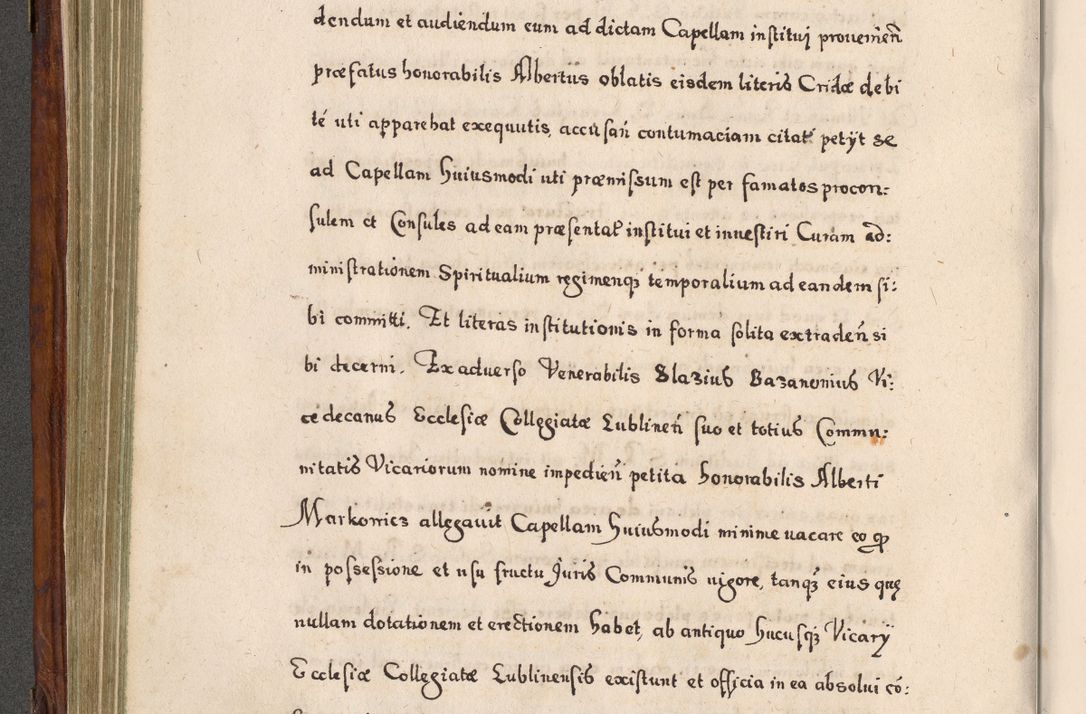 dendum et audiendum eum ad dictam Capellam institui provenien̄
præfatus honorabilis Albertus oblatis eisdem literis Cridæ debi
té uti apparebat exequutis, accusan̄ contumaciam citat̄ petÿt se
ad Capellam huiusmodi uti præmissum est per famatos procon:
sulem et Consules ad eam præsentat̄ institui et investiri Curam ad:
ministrationem Spiritualium regimenqꝫ temporalium ad eandem si:
bi committi. Et literas institutionis in forma solita extraden̄ si
bi decerni. Ex adverso Venerabilis Blazius Bazanonius Vi:
cedecanus Ecclesiæ Collegiatæ Lublinen̄ suo et totius Commu:
nitatis Vicariorum nomine impedien̄ petita honorabilis Alberti
Markowics allegavit Capellam huiusmodi minime vacare eo ꝙ
in possessione et usu fructu Juris Communis vigore, tanqꝫ eius quę
nullam dotationem et erectionem habet, ab antiquo hucusqꝫ Vicarÿ
Ecclesiæ Collegiatæ Lublinensis existunt et officia in ea absolui có: